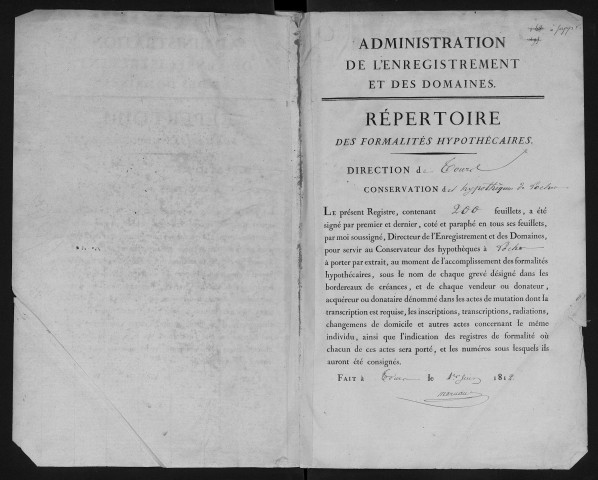 ADMINISTRATION
DE L'ENREGISTREMENT
ET DES DOMAINES.
RÉPERTOIRE
DES FORMALITÉS HYPOTHÉCAIRES.
DIRECTION de Tours
CONSERVATION des hypothèques de Loches
LE présent Registre, contenant 200 feuillets, a été
signé par premier et dernier, coté et paraphé en tous ses feuillets,
par moi soussigné, Directeur de l'Enregistrement et des Domaines,
pour servir au Conservateur des hypothèques à Loches
à porter par extrait, au moment de l'accomplissement des formalités
hypothécaires, sous le nom de chaque grevé désigné dans les
bordereaux de créances, et de chaque vendeur ou donateur,
acquéreur ou donataire dénommé dans les actes de mutation dont la
transcription est requise, les inscriptions, transcriptions, radiations,
changemens de domicile et autres actes concernant le même
individu, ainsi que l'indication des registres de formalité où
chacun de ces actes sera porté, et les numéros sous lesquels ils
auront été consignés.
FAIT à Tours le 1812